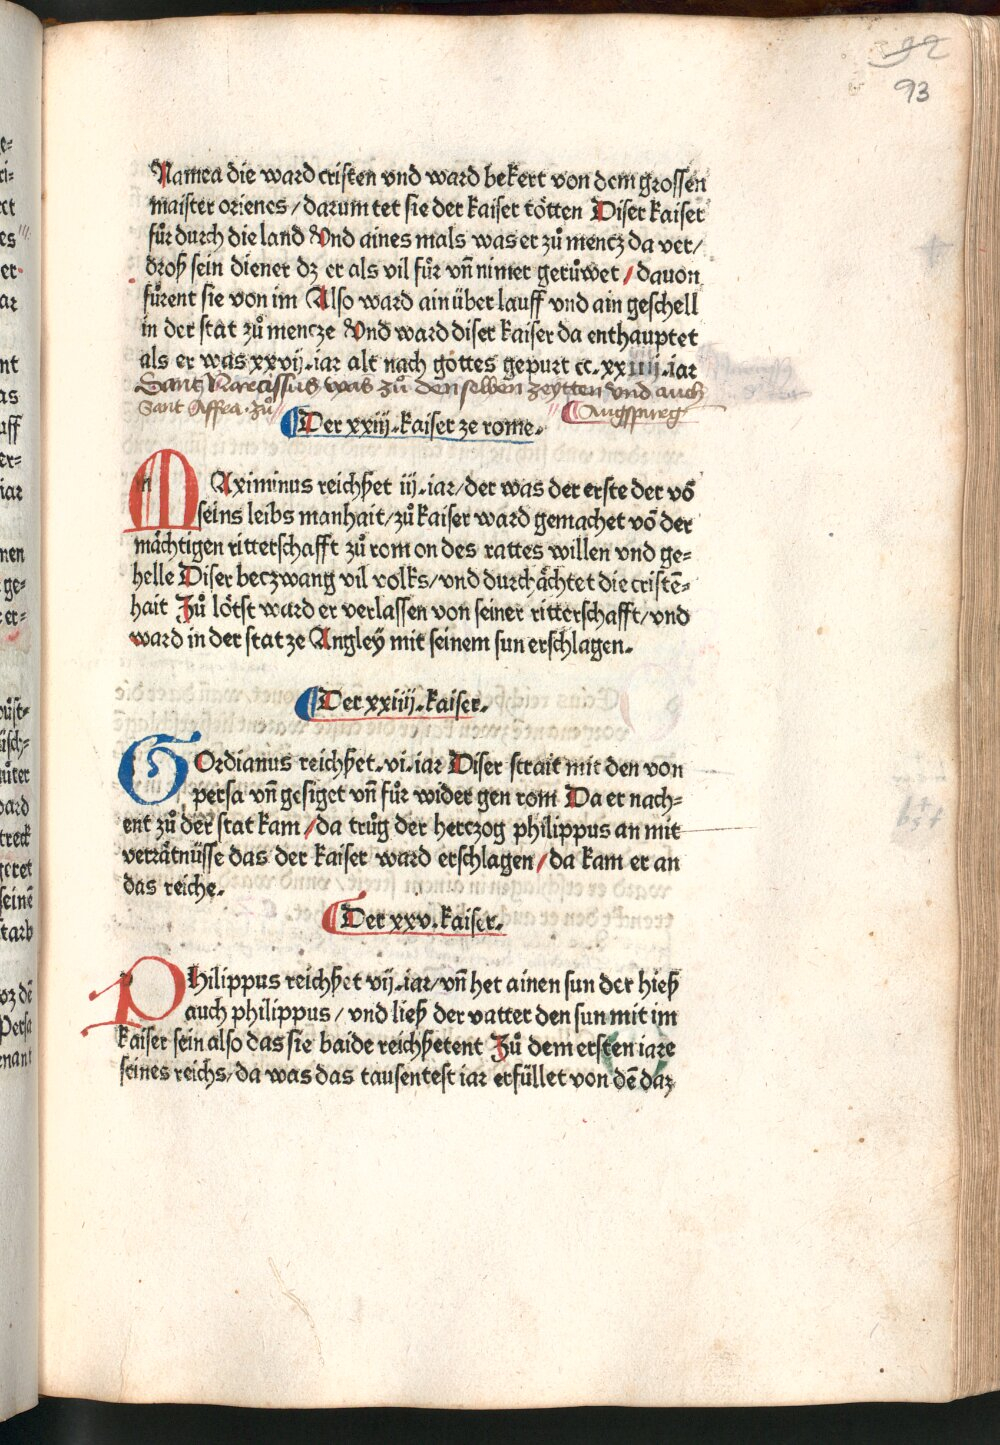 92
93
Namea die ward cristen vnd ward bekert von dem grossen
maister orienes / darum tet sie der kaiser tötten Diser kaiser
fůr durch die land Vnd aines mals was er zů mencz da ver/
droß sein diener dz er als vil fůr vñ nimer gerůwet / dauon
fůrent sie von im Also ward ain über lauff vnd ain geschell
in der stat zů mencze Vnd ward diser kaiser da enthauptet
als er was xxvij.iar alt nach gottes gepurt cc.xxiiij.iar
Sant Narcissus was zů denselben zeytten vnd auch
Sant Affra. zů Augspurg
Der xxiij.kaiser ze rome.
MAximinus reichßet iij.iar/der was der erste der vō
seins leibs manhait/zů kaiser ward gemachet vō der
mächtigen ritterschafft zů rom on des rattes willen vnd ge=
helle Diser beczwang vil volks/vnd durchächtet die cristē=
hait Zů lötst ward er verlassen von seiner ritterschafft/vnd
ward in der stat ze Angleÿ mit seinem sun erschlagen.
Der xxiiij.kaiser.
GOrdianus reichßet.vi.iar Diser strait mit den von
persa vñ gesiget vñ fůr wider gen rom Da er nach=
ent zů der stat kam /da trůg der herczog philippus an mit
verrätnüsse das der kaiser ward erschlagen/da kam er an
das reiche.
Der xxv.kaiser.
PHilippus reichßet vij.iar/vñ het ainen sun der hieß
auch philippus / vnd ließ der vatter den sun mit im
kaiser sein also das sie baide reichßetent Zů dem ersten iare
seines reichs/da was das tausentest iar erfüllet von dē daz